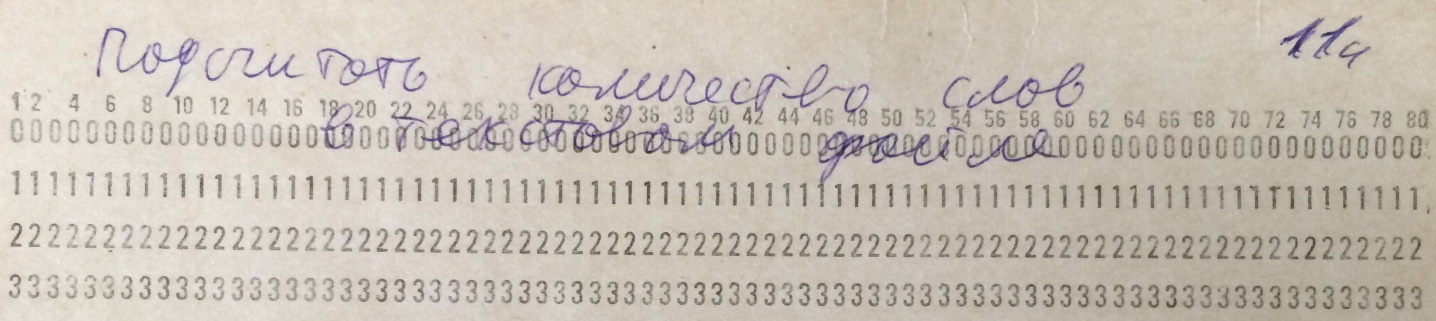 Подсчитать количество слов 11а
1 2 4 6 8 10 12 14 16 18 20 22 24 26 28 30 32 34 36 38 40 42 44 46 48 50 52 54 56 58 60 62 64 66 68 70 72 74 76 78 80
в текстовом файле
00000000000000000000000000000000000000000000000000000000000000000000000000000000
11111111111111111111111111111111111111111111111111111111111111111111111111111111
22222222222222222222222222222222222222222222222222222222222222222222222222222222
33333333333333333333333333333333333333333333333333333333333333333333333333333333